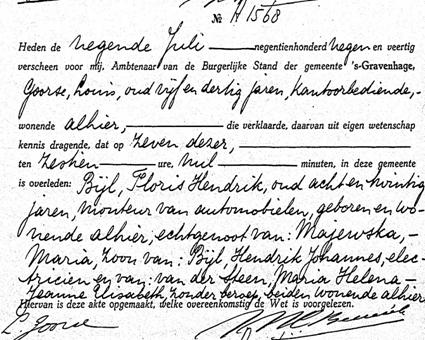 № A 1568
Heden de negende Juli negentienhonderd negen en veertig
verscheen voor mij, Ambtenaar van de Burgerlijke Stand der gemeente 's-Gravenhage,
Goorse, Louis, oud vijf en dertig jaren, kantoorbediende,-
wonende alhier, die verklaarde, daarvan uit eigen wetenschap
kennis dragende, dat op zeven dezer,
ten zestien ure, nul minuten, in deze gemeente
is overleden: Bijl, Floris Hendrik, oud acht en twintig
jaren, monteur van automobielen, geboren en wo-
nende alhier, echtgenoot van: Majewska,-
Maria, zoon van: Bijl Hendrik Johannes, elec-
tricien en van: van der Steen, Maria Helena-
Jeanne Elisabeth, zonder beroep, beiden wonende alhier
Hiervan is deze akte opgemaakt, welke overeenkomstig de Wet is voorgelezen.
L. Goorse